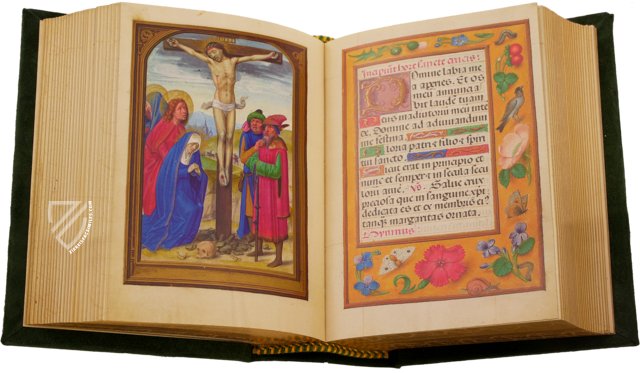 Incipiunt hore sancte crucis.
Domine labia me
a aperies. Et os
meu annunci
bit laudē tuam
eus madiutoriū meū inte
de. Domine ad adiuuandum
me festina.
loria patri et filio et spiri
tui sancto.
icut erat in principio et
nunc et semper et in secula secu
lorū amē. Vs. Salue crux
preciosa que in sanguine xpi
dedicata es et ex membris ei9
tanq̄ margaritis ornata.
FACSIMILEFINDER.COM